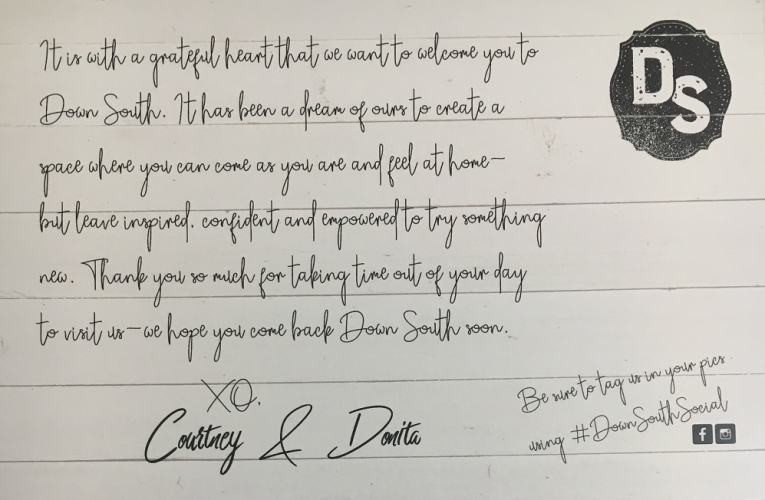 It is with a grateful heart that we want to welcome you to
Down South. It has been a dream of ours to create a
space where you can come as you are and feel at home—
but leave inspired, confident and empowered to try something
new. Thank you so much for taking time out of your day
to visit us—we hope you come back Down South soon.
XO,
Courtney & Donita
DS
Be sure to tag us in your pics
using #DownSouthSocial